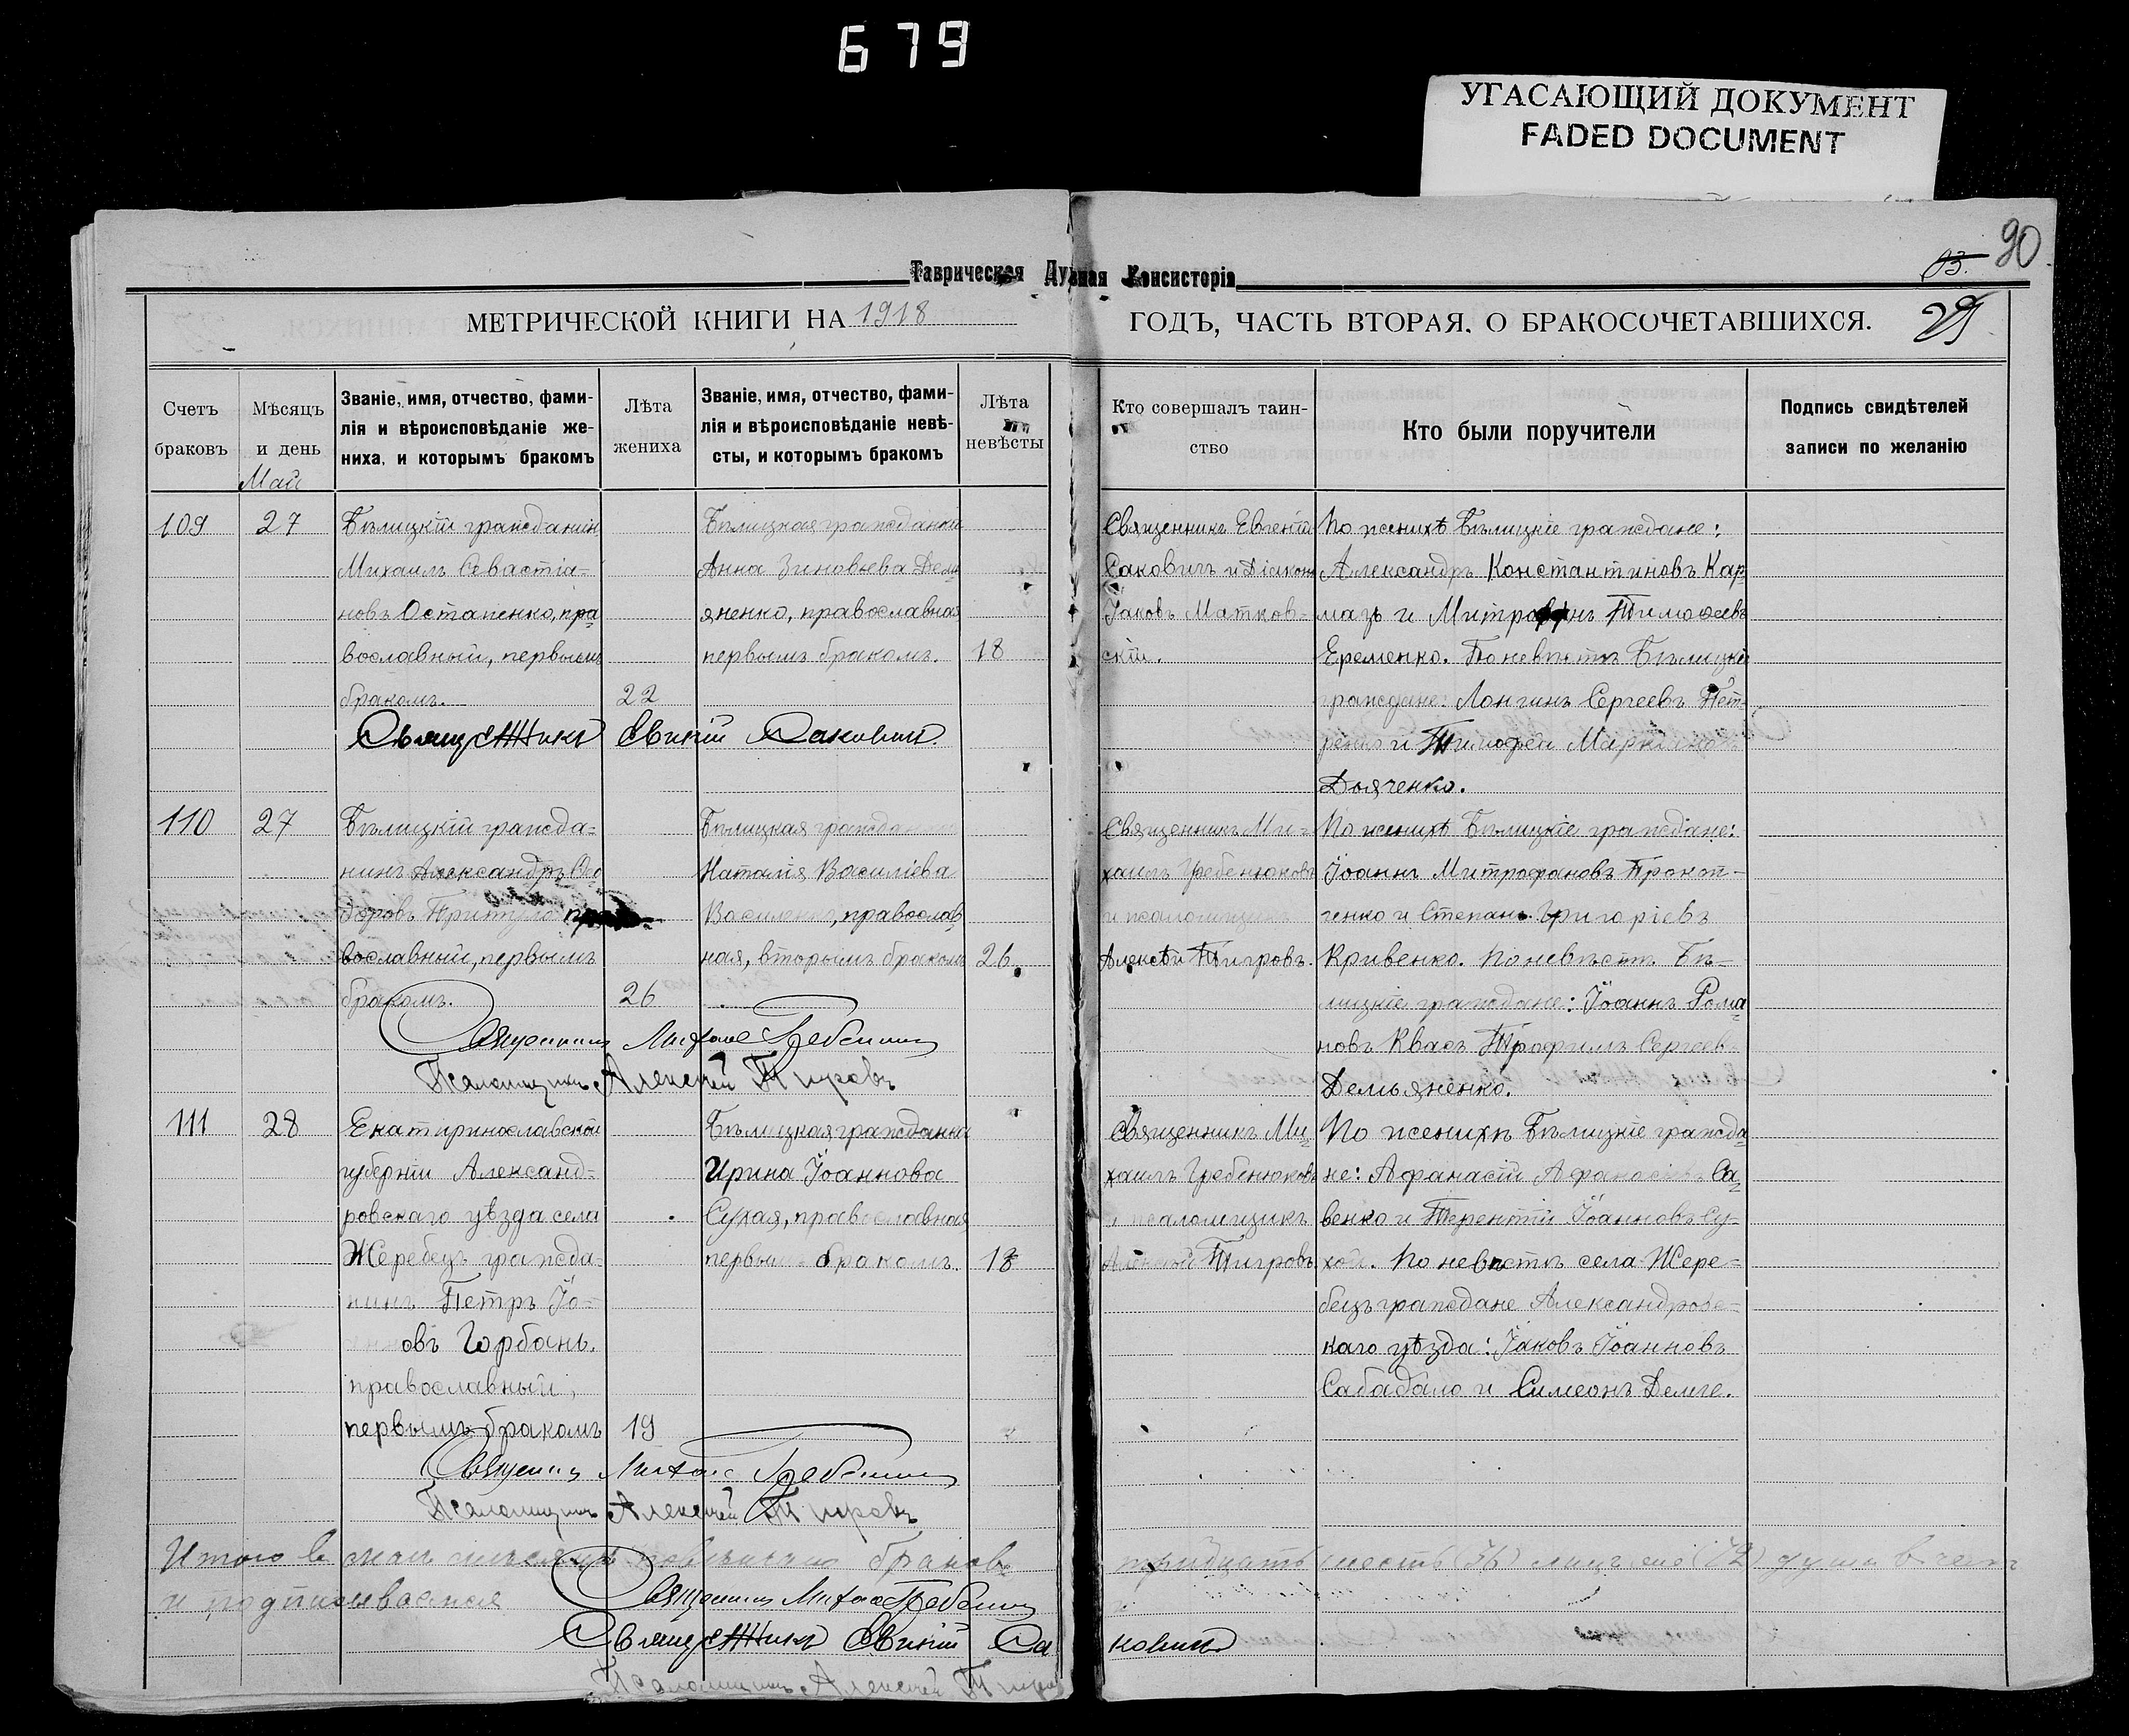 679
УГАСАЮЩИЙ ДОКУМЕНТ
FADED DOCUMENT
90
93.
Таврическая Духвная Консисторія
МЕТРИЧЕСКОЙ КНИГИ НА 1918
ГОДЪ, ЧАСТЬ ВТОРАЯ, О БРАКОСОЧЕТАВШИХСЯ.
29
Счетъ браковъ
Мѣсяцъ и день
Май
Званіе, имя, отчество, фами-
лія и вѣроисповѣданіе же-
ниха, и которымъ бракомъ
Лѣта жениха
Званіе, имя, отчество, фами-
лія и вѣроисповѣданіе невѣ-
сты, и которымъ бракомъ
Лѣта невѣсты
Кто совершалъ таин-
ство
Кто были поручители
Подпись свидѣтелей
записи по желанію
109
27
Бѣлицкій гражданинъ
Михаилъ Севастіа-
новъ Остапенко, пра-
вославный, первымъ
бракомъ.
22
Бѣлицкая гражданка
Анна Зиновьева Демь-
яненко, православная
первымъ бракомъ.
18
Священникъ Евгеній
Саковичъ и Діаконъ
Іаковъ Матков-
скій.
По женихѣ Бѣлицкіе граждане:
Александръ Константиновъ Кар-
мазъ и Митрофанъ Тимофеевъ
Еременко. По невѣстѣ Бѣлицкіе
граждане: Лонгинъ Сергеевъ Пет-
ренко и Тимофей
Дьяченко.
Священникъ Евгеній Саковичъ.
110
27
Бѣлицкій гражда-
нинъ Александръ Ѳео-
доровъ Притула пра-
вославный, первымъ
бракомъ.
26
Бѣлицкая гражданка
Наталія Василіева
Василенко, православ-
ная, вторымъ бракомъ
26
Священникъ Ми-
хаилъ Гребенюковъ
и псаломщикъ
Алексѣй Тигровъ.
По женихѣ Бѣлицкіе граждане:
Іоаннъ Митрофановъ
ченко и Степанъ Григоріевъ
Кривенко. По невѣстѣ Бѣ-
лицкіе граждане: Іоаннъ Рома-
новъ Квасъ Трофимъ Сергеевъ
Демьяненко.
Священникъ Михаилъ Гребенюковъ
Псаломщикъ Алексѣй Тигровъ
111
28
Екатеринославской
губерніи Александ-
ровскаго уѣзда села
Жеребецъ гражда-
нинъ Петръ Іо-
анновъ Горбань.
православный,
первымъ бракомъ
19
Бѣлицкая гражданка
Ирина Іоаннова
Сухая, православная
первымъ бракомъ.
18
Священникъ Ми-
хаилъ Гребенюковъ
и псаломщикъ
Алексѣй Тигровъ
По женихѣ Бѣлицкіе гражда-
не: Афанасій Афанасіевъ Са-
венко и Терентій Іоанновъ Су-
хой. По невѣстѣ села Жере-
бецъ граждане Александровс-
каго уѣзда: Іаковъ Іоанновъ
Сабадало и Симеонъ
Священникъ Михаилъ Гребенюковъ
Псаломщикъ Алексѣй Тигровъ
Итого в мае месяце браковъ тридцать шесть (36)
и подписываемся
Священникъ Михаилъ Гребенюковъ
Священникъ Евгеній Саковичъ
Псаломщикъ Алексѣй Тигровъ